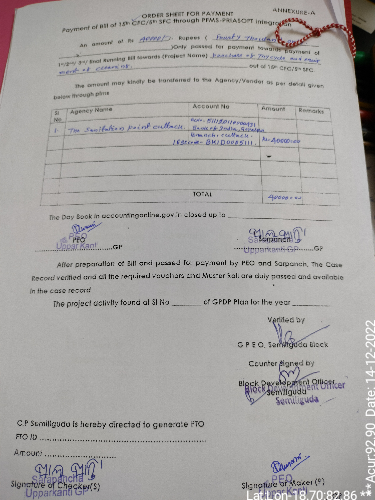 ANNEXURE-A
ORDER SHEET FOR PAYMENT
Payment of Bill of 15th CFC/5th SFC through PFMS-PRIASOFT integration
An amount of Rs 40000/- Rupees (
)Only passed for payment towards payment of
1st/2nd/3rd/ final Running Bill towards (Project Name)
out of 15th CFC/5th SFC
The amount may kindly be transferred to the Agency/Vendor as per detail given
below through pfms
Sl No Agency Name Account No Amount Remarks
1. The Sanitation point cuttack.
40000=00
TOTAL 40000=00
The Day Book in accountingonline.gov.in closed up to
PEO Sarapanch
Upparkanti GP Upparkanti GP
After preparation of Bill and passed for payment by PEO and Sarpanch, The Case
Record verified and all the required Vouchers and Muster Roll are duly passed and available
in the case record
The project activity found at Sl No of GPDP Plan for the year
Verified by
G.P.E.O, Semiliguda Block
Counter Signed by
Block Development Officer
Semiliguda
G.P Sumiliguda is hereby directed to generate FTO
FTO ID
Amount
Signature of Checker(S) Signature of Maker (P)
Sarapanch PEO
Upparkanti GP Upparkanti GP
Lat Lon-18.70:82.86 *** Acur:92.90 Date:14-12-2022